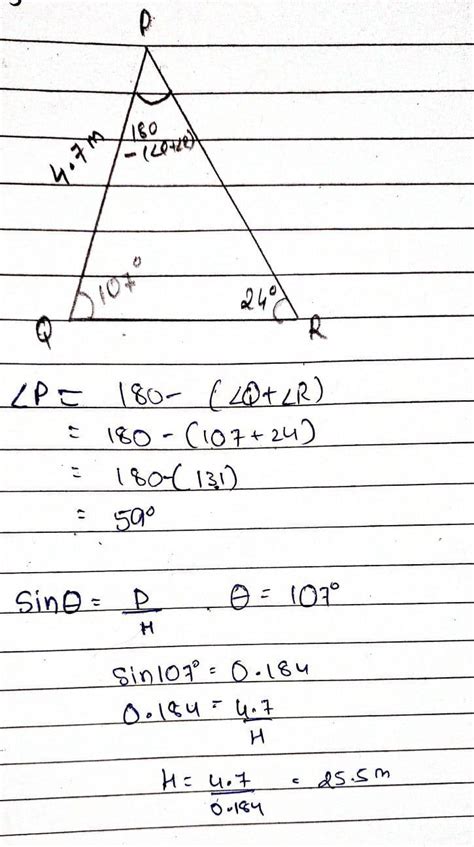 P
4.7 m
180
-(∠Q+∠R)
107°
24°
Q
R
∠P = 180- (∠Q+∠R)
= 180 - (107+24)
= 180-(131)
= 59°
Sinθ = P/H . θ = 107°
Sin107° = 0.184
0.184 = 4.7/H
H = 4.7/0.184 = 25.5m